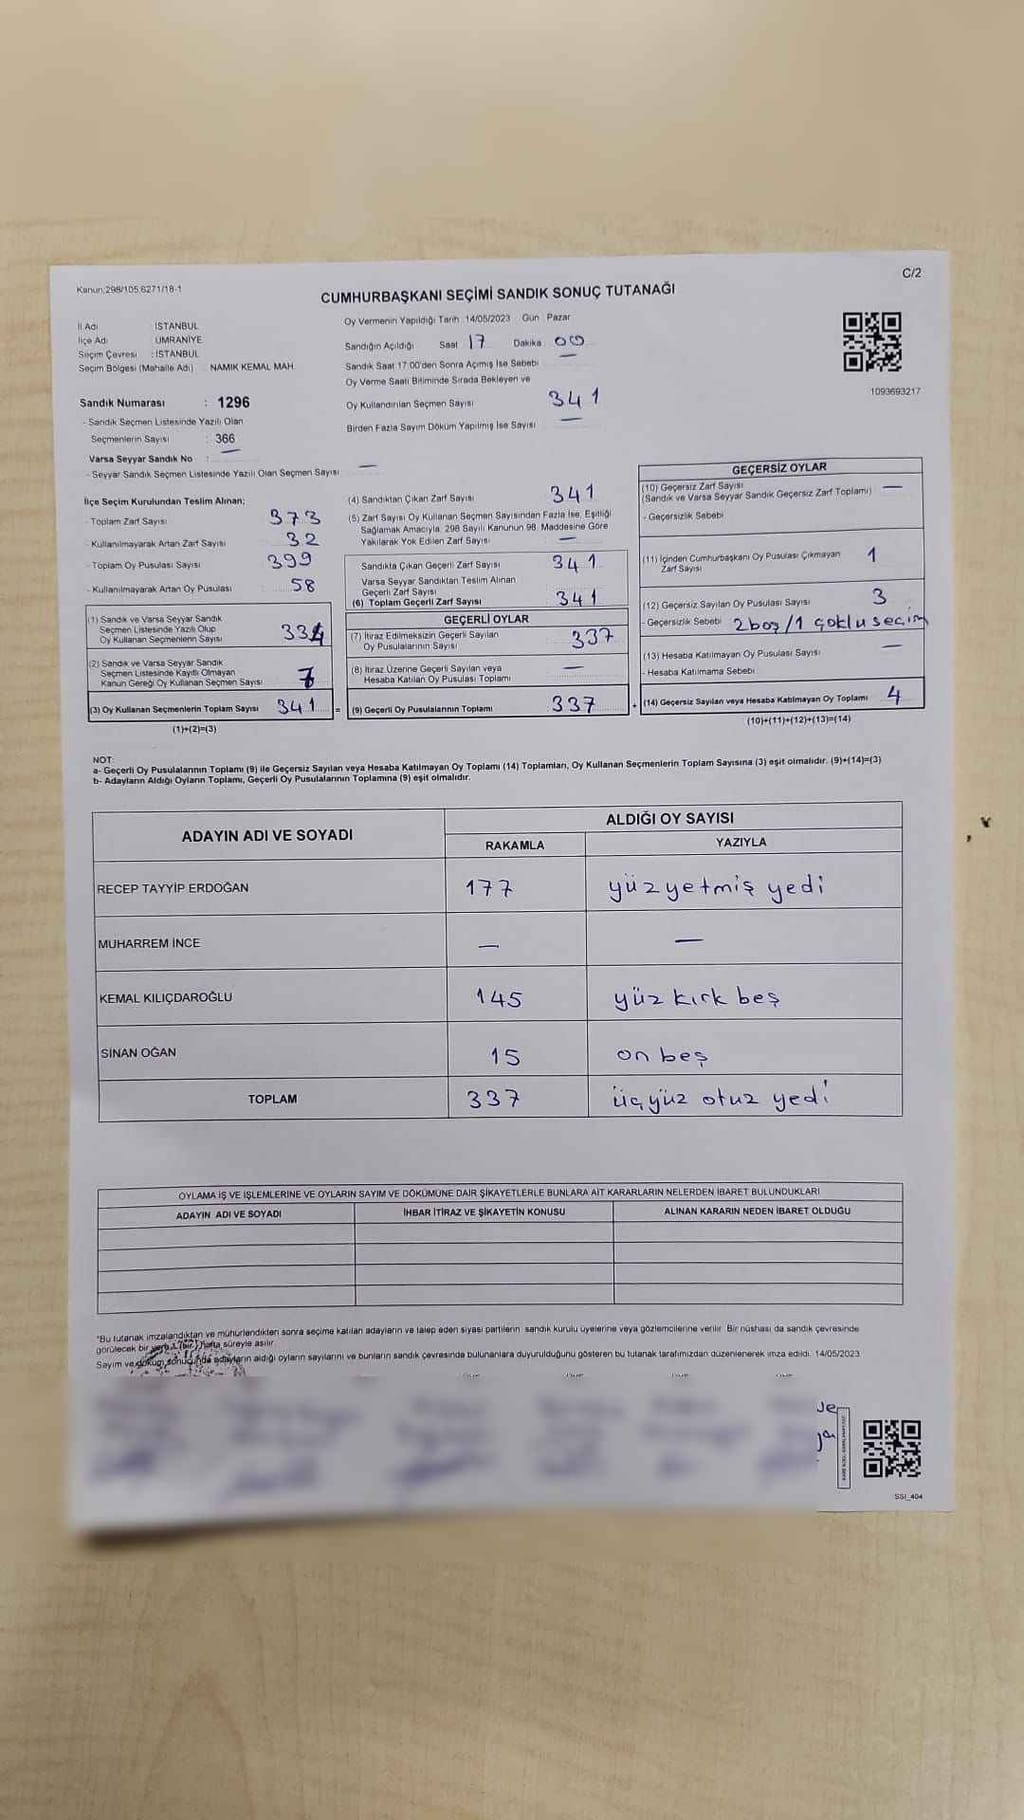 Kanun.298/105.6271/18-1
C/2
CUMHURBAŞKANI SEÇİMİ SANDIK SONUÇ TUTANAĞI
İl Adı İSTANBUL
İlçe Adı ÜMRANİYE
Seçim Çevresi : İSTANBUL
Seçim Bölgesi (Mahalle Adı) NAMIK KEMAL MAH.
Sandık Numarası : 1296
- Sandık Seçmen Listesinde Yazılı Olan
Seçmenlerin Sayısı : 366
Varsa Seyyar Sandık No : —
- Seyyar Sandık Seçmen Listesinde Yazılı Olan Seçmen Sayısı —
Oy Vermenin Yapıldığı Tarih 14/05/2023 Gün Pazar
Sandığın Açıldığı Saat 17 Dakika 00
Sandık Saat 17:00'den Sonra Açımış İse Sebebi —
Oy Verme Saati Bitiminde Sırada Bekleyen ve
Oy Kullandırılan Seçmen Sayısı 341
Birden Fazla Sayım Döküm Yapılmış İse Sayısı —
1093693217
İlçe Seçim Kurulundan Teslim Alınan;
- Toplam Zarf Sayısı 373
- Kullanılmayarak Artan Zarf Sayısı 32
- Toplam Oy Pusulası Sayısı 399
- Kullanılmayarak Artan Oy Pusulası 58
(1) Sandık ve Varsa Seyyar Sandık
Seçmen Listesinde Yazılı Olup
Oy Kullanan Seçmenlerin Sayısı 334
(2) Sandık ve Varsa Seyyar Sandık
Seçmen Listesinde Kayıtlı Olmayan
Kanun Gereği Oy Kullanan Seçmen Sayısı 7
(3) Oy Kullanan Seçmenlerin Toplam Sayısı 341 =
(1)+(2)=(3)
(4) Sandıktan Çıkan Zarf Sayısı 341
(5) Zarf Sayısı Oy Kullanan Seçmen Sayısından Fazla İse, Eşitliği
Sağlamak Amacıyla, 298 Sayılı Kanunun 98. Maddesine Göre
Yakılarak Yok Edilen Zarf Sayısı —
Sandıkta Çıkan Geçerli Zarf Sayısı 341
Varsa Seyyar Sandıktan Teslim Alınan
Geçerli Zarf Sayısı
(6) Toplam Geçerli Zarf Sayısı 341
GEÇERLİ OYLAR
(7) İtiraz Edilmeksizin Geçerli Sayılan
Oy Pusulalarının Sayısı 337
(8) İtiraz Üzerine Geçerli Sayılan veya
Hesaba Katılan Oy Pusulası Toplamı —
(9) Geçerli Oy Pusulalarının Toplamı 337 +
GEÇERSİZ OYLAR
(10) Geçersiz Zarf Sayısı
(Sandık ve Varsa Seyyar Sandık Geçersiz Zarf Toplamı) —
- Geçersizlik Sebebi
(11) İçinden Cumhurbaşkanı Oy Pusulası Çıkmayan
Zarf Sayısı 1
(12) Geçersiz Sayılan Oy Pusulası Sayısı 3
- Geçersizlik Sebebi 2boş/1 çoklu seçim
(13) Hesaba Katılmayan Oy Pusulası Sayısı —
- Hesaba Katılmama Sebebi
(14) Geçersiz Sayılan veya Hesaba Katılmayan Oy Toplamı 4
(10)+(11)+(12)+(13)=(14)
NOT:
a- Geçerli Oy Pusulalarının Toplamı (9) ile Geçersiz Sayılan veya Hesaba Katılmayan Oy Toplamı (14) Toplamları, Oy Kullanan Seçmenlerin Toplam Sayısına (3) eşit olmalıdır. (9)+(14)=(3)
b- Adayların Aldığı Oyların Toplamı, Geçerli Oy Pusulalarının Toplamına (9) eşit olmalıdır.
ADAYIN ADI VE SOYADI
ALDIĞI OY SAYISI
RAKAMLA YAZIYLA
RECEP TAYYİP ERDOĞAN 177 yüz yetmiş yedi
MUHARREM İNCE — —
KEMAL KILIÇDAROĞLU 145 yüz kırk beş
SİNAN OĞAN 15 on beş
TOPLAM 337 üçyüz otuz yedi
OYLAMA İŞ VE İŞLEMLERİNE VE OYLARIN SAYIM VE DÖKÜMÜNE DAİR ŞİKAYETLERLE BUNLARA AİT KARARLARIN NELERDEN İBARET BULUNDUKLARI
ADAYIN ADI VE SOYADI İHBAR İTİRAZ VE ŞİKAYETİN KONUSU ALINAN KARARIN NEDEN İBARET OLDUĞU
*Bu tutanak imzalandıktan ve mühürlendikten sonra seçime katılan adayların ve talep eden siyasi partilerin sandık kurulu üyelerine veya gözlemcilerine verilir. Bir nüshası da sandık çevresinde
görülecek bir yere 1 (bir) hafta süreyle asılır.
Sayım ve döküm sonucunda adayların aldığı oyların sayılarını ve bunların sandık çevresinde bulunanlara duyurulduğunu gösteren bu tutanak tarafımızdan düzenlenerek imza edildi. 14/05/2023
SSI_404